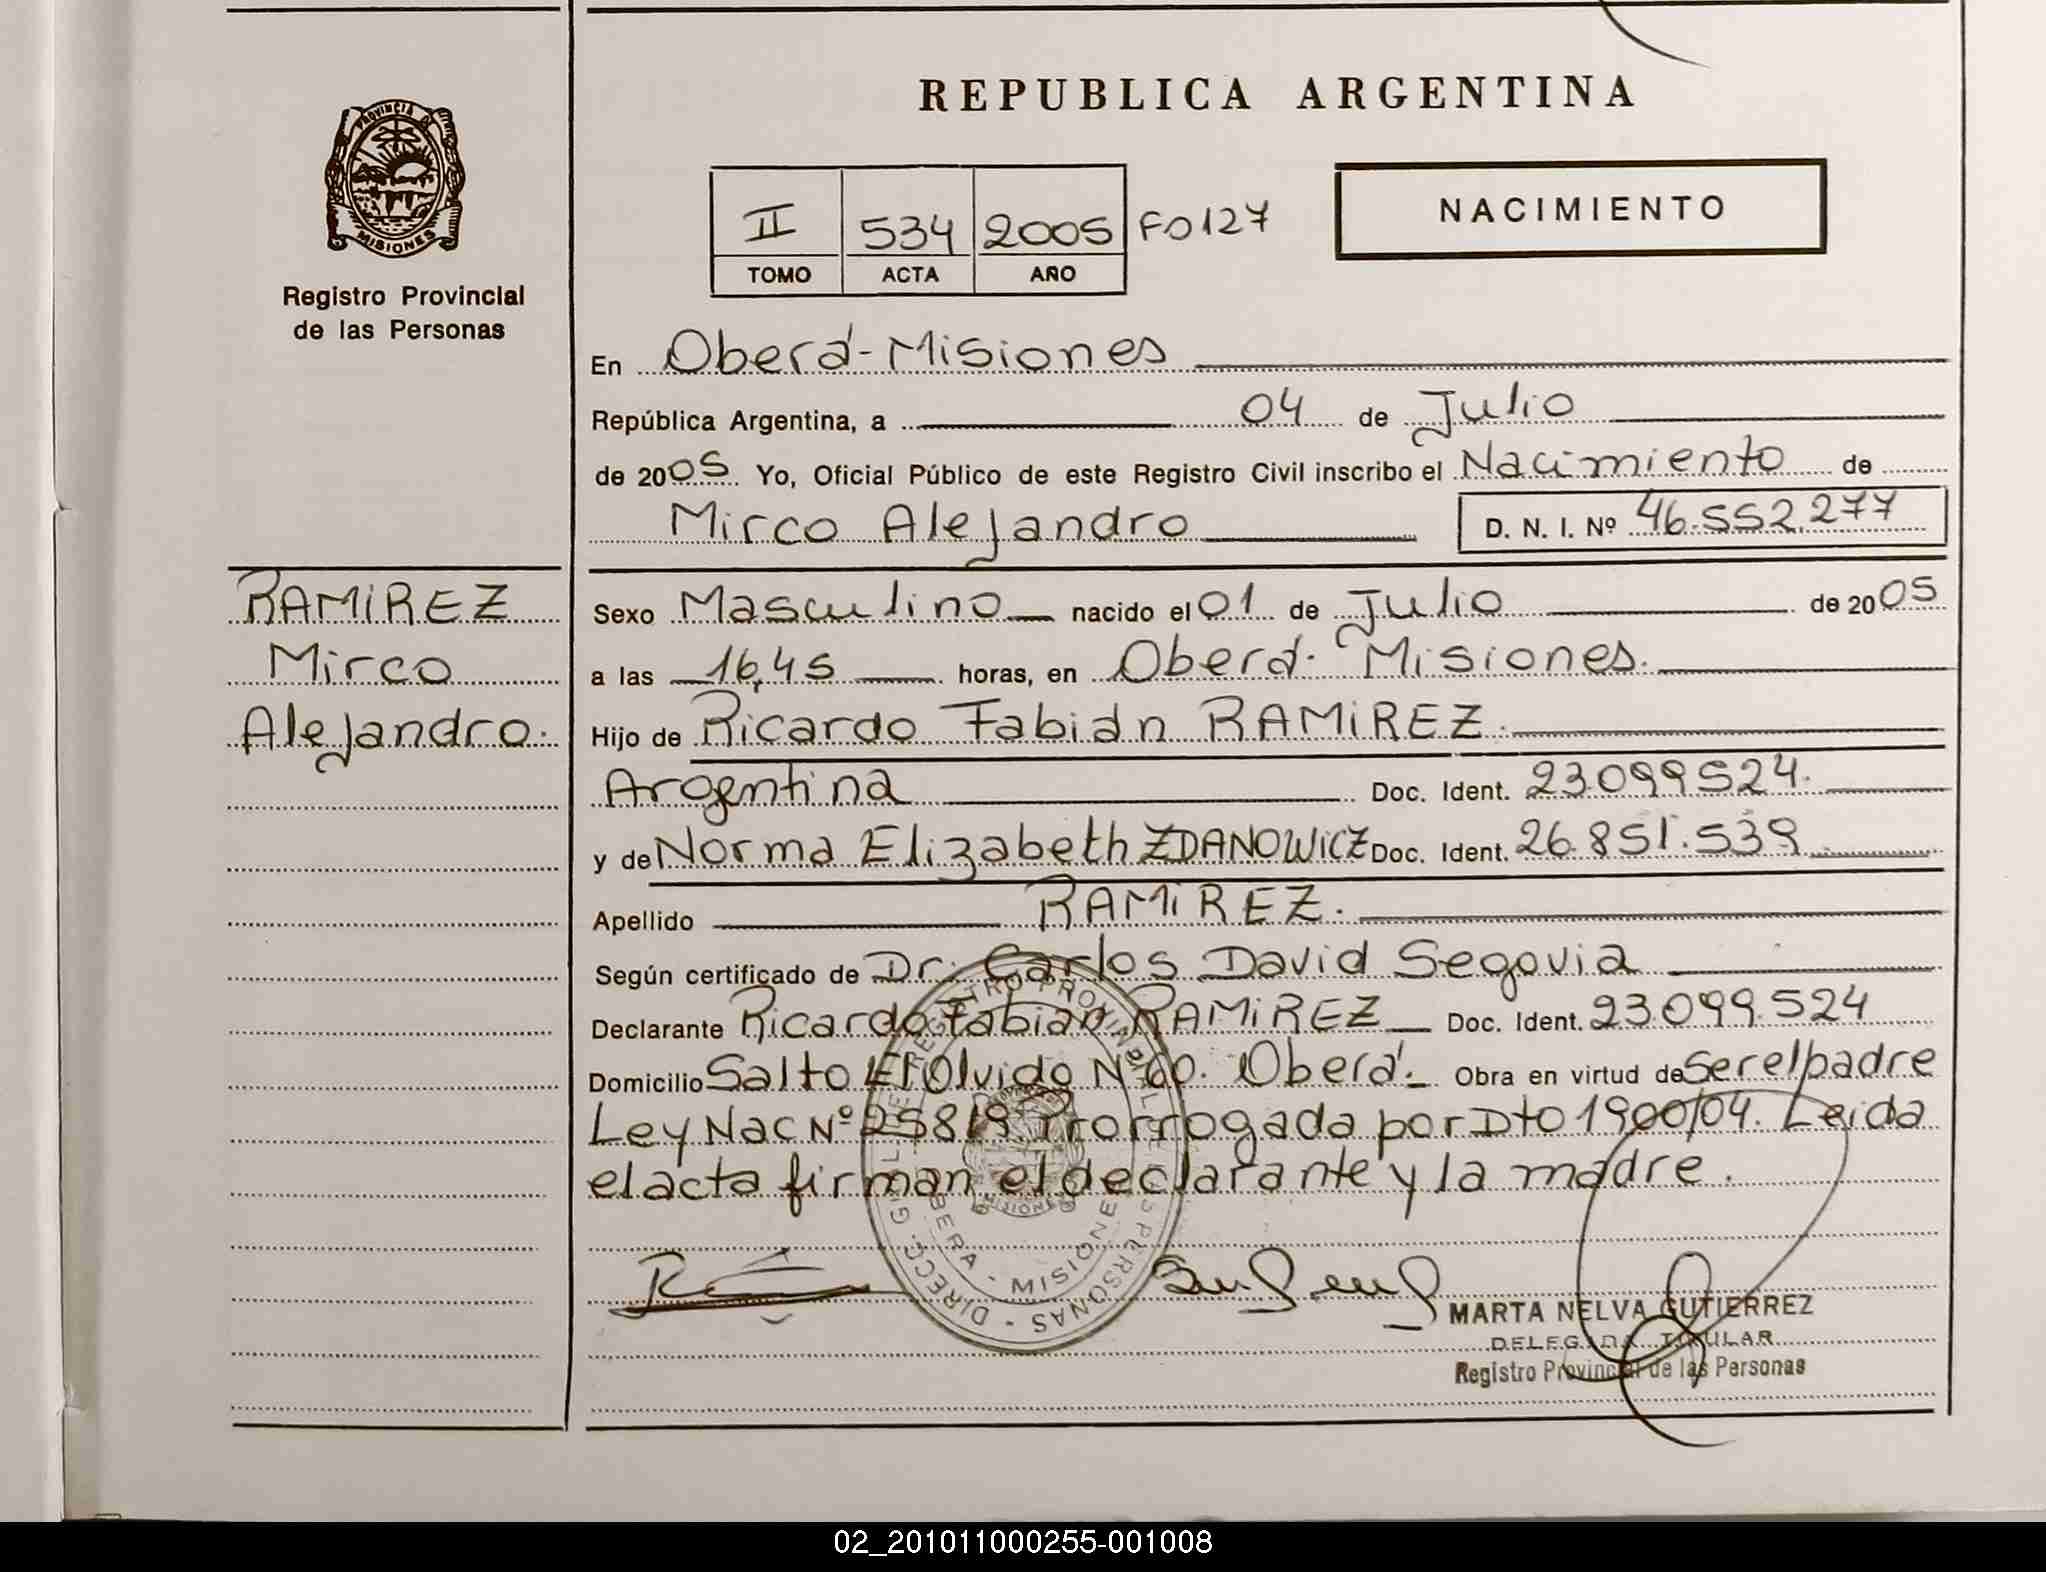 REPUBLICA ARGENTINA
PROVINCIA DE
MISIONES
Registro Provincial
de las Personas
II 534 2005 FO127
TOMO ACTA AÑO
NACIMIENTO
En Oberá-Misiones
República Argentina, a 04 de Julio
de 2005 Yo, Oficial Público de este Registro Civil inscribo el Nacimiento de
Mirco Alejandro D. N. I. Nº 46.552.277
RAMIREZ
Mirco
Alejandro.
Sexo Masculino nacido el 01 de Julio de 2005
a las 16,45 horas, en Oberá. Misiones.
Hijo de Ricardo Fabián RAMIREZ.
Argentina Doc. Ident. 23.099.524.
y de Norma Elizabeth ZDANOWICZ Doc. Ident. 26.851.539
Apellido RAMIREZ.
Según certificado de Dr. Carlos David Segovia
Declarante Ricardo Fabian RAMIREZ Doc. Ident. 23.099.524
Domicilio Salto El Olvido Nº 60. Oberá. Obra en virtud de ser el padre
Ley Nac Nº 25819. Prorrogada por Dto 1900/04. Leida
el acta firman el declarante y la madre.
DIRECC. GRAL. DE REGISTRO PROVINCIAL DE LAS PERSONAS
OBERA - MISIONES
MARTA NELVA GUTIERREZ
DELEGADA TITULAR
Registro Provincial de las Personas
02_201011000255-001008